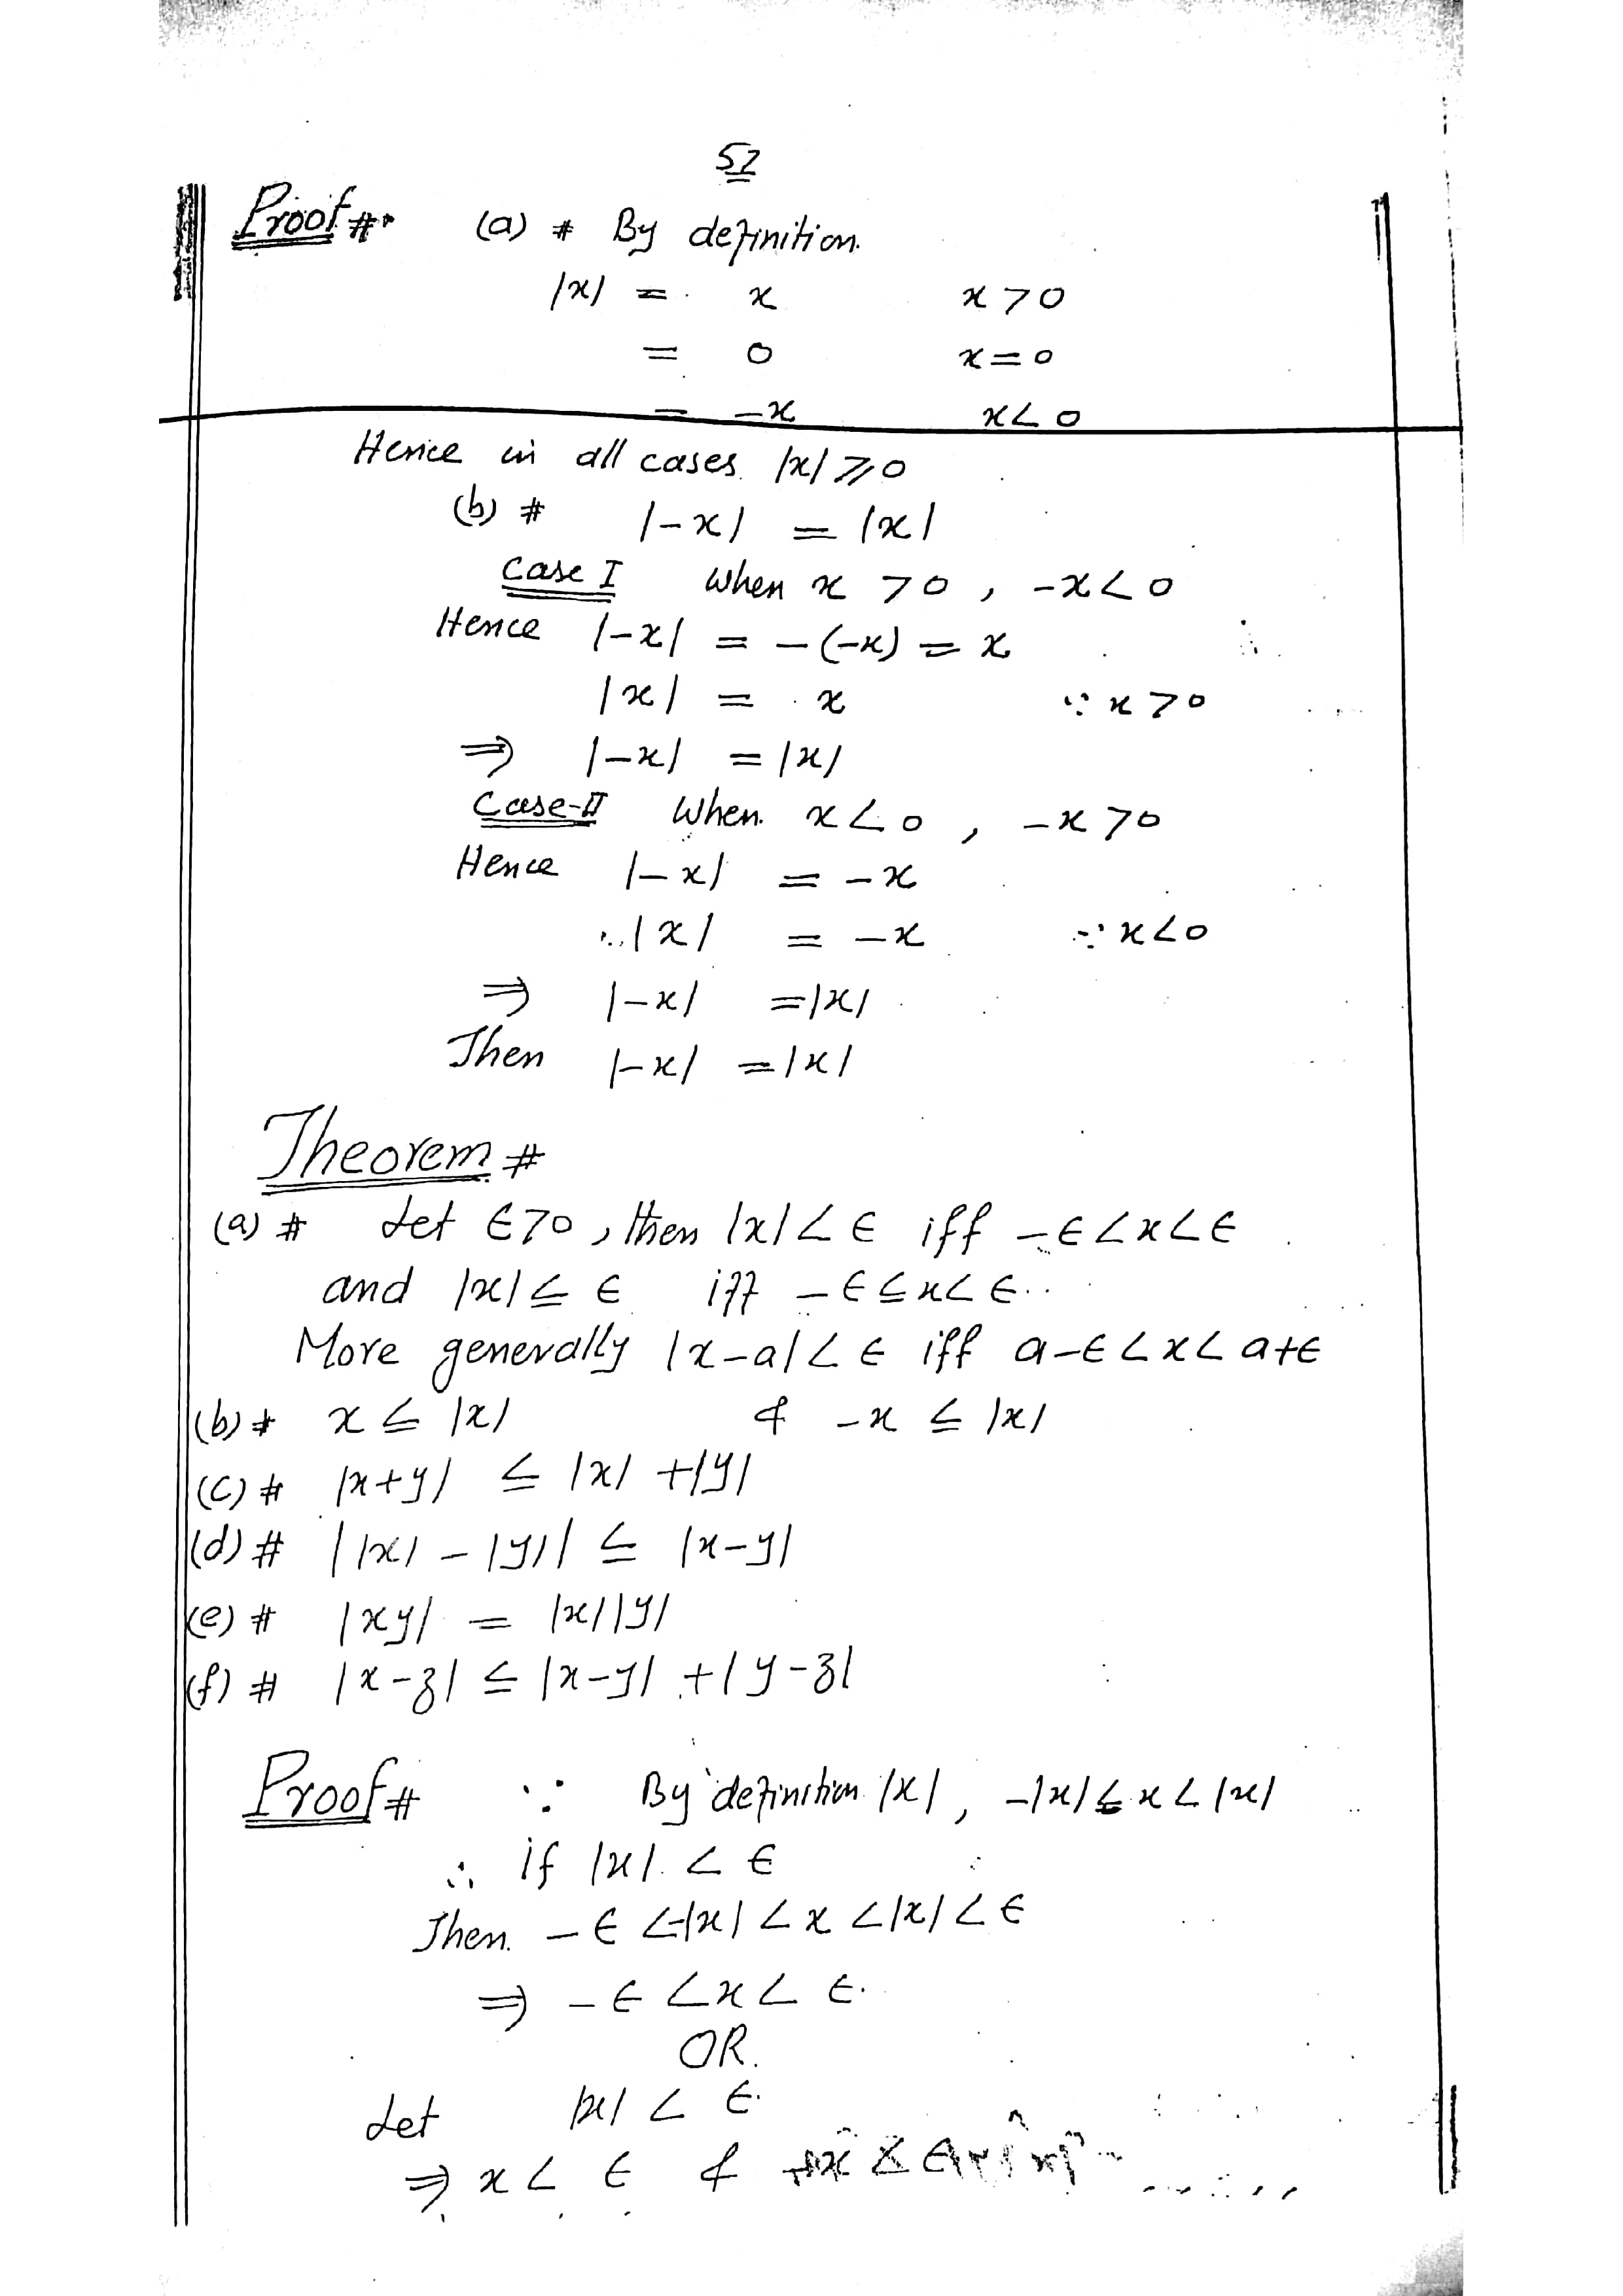 52
Proof # (a) # By definition.
|x| = x x > 0
= 0 x = 0
= -x x < 0
Hence in all cases |x| ⩾ 0
(b) # |-x| = |x|
Case I When x > 0 , -x < 0
Hence |-x| = -(-x) = x
|x| = x ∵ x > 0
⇒ |-x| = |x|
Case-II When x < 0 , -x > 0
Hence |-x| = -x
∴ |x| = -x ∵ x < 0
⇒ |-x| = |x|
Then |-x| = |x|
Theorem #
(a) # Let ϵ > 0 , then |x| < ϵ iff -ϵ < x < ϵ
and |x| ≤ ϵ iff -ϵ ≤ x < ϵ.
More generally |x-a| < ϵ iff a-ϵ < x < a+ϵ
(b) # x ≤ |x| & -x ≤ |x|
(c) # |x+y| ≤ |x| + |y|
(d) # ||x| - |y|| ≤ |x-y|
(e) # |xy| = |x||y|
(f) # |x-z| ≤ |x-y| + |y-z|
Proof # ∵ By definition |x| , -|x| ≤ x < |x|
∴ if |x| < ϵ
Then -ϵ < -|x| < x < |x| < ϵ
⇒ -ϵ < x < ϵ.
OR.
Let |x| < ϵ.
⇒ x < ϵ &